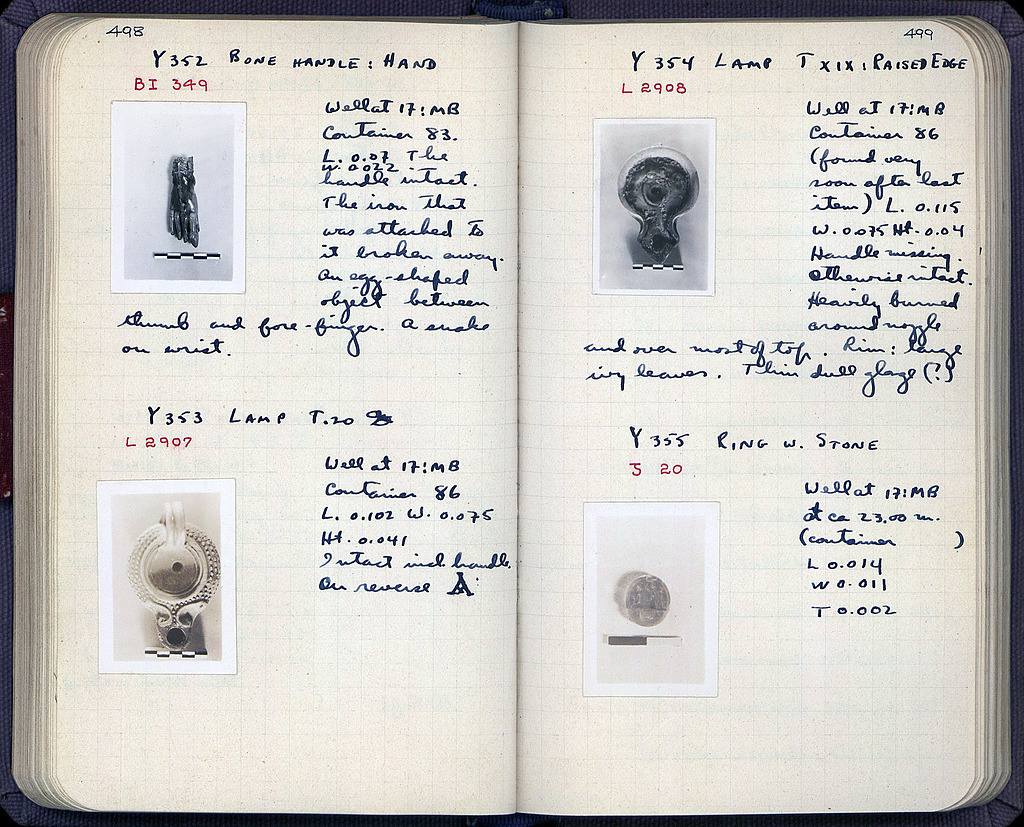 498
Y 352 BONE HANDLE : HAND
BI 349
Well at 17:MB
Container 83.
L. 0.07 The
W. 0.022
handle intact.
The iron that
was attached to
it broken away.
An egg-shaped
object between
thumb and fore-finger. A snake
on wrist.
Y 353 LAMP T.20
L 2907
Well at 17:MB
Container 86
L. 0.102 W. 0.075
Ht. 0.041
Intact incl. handle.
On reverse A
499
Y 354 LAMP T XIX : RAISED EDGE
L 2908
Well at 17:MB
Container 86
(found very
soon after last
item) L. 0.115
W. 0.075 Ht. 0.04
Handle missing.
Otherwise intact.
Heavily burned
around nozzle
and over most of top. Rim: large
ivy leaves. Thin dull glaze (?)
Y 355 RING W. STONE
J 20
Well at 17:MB
at ca 23.00 m.
(container )
L 0.014
W 0.011
T 0.002